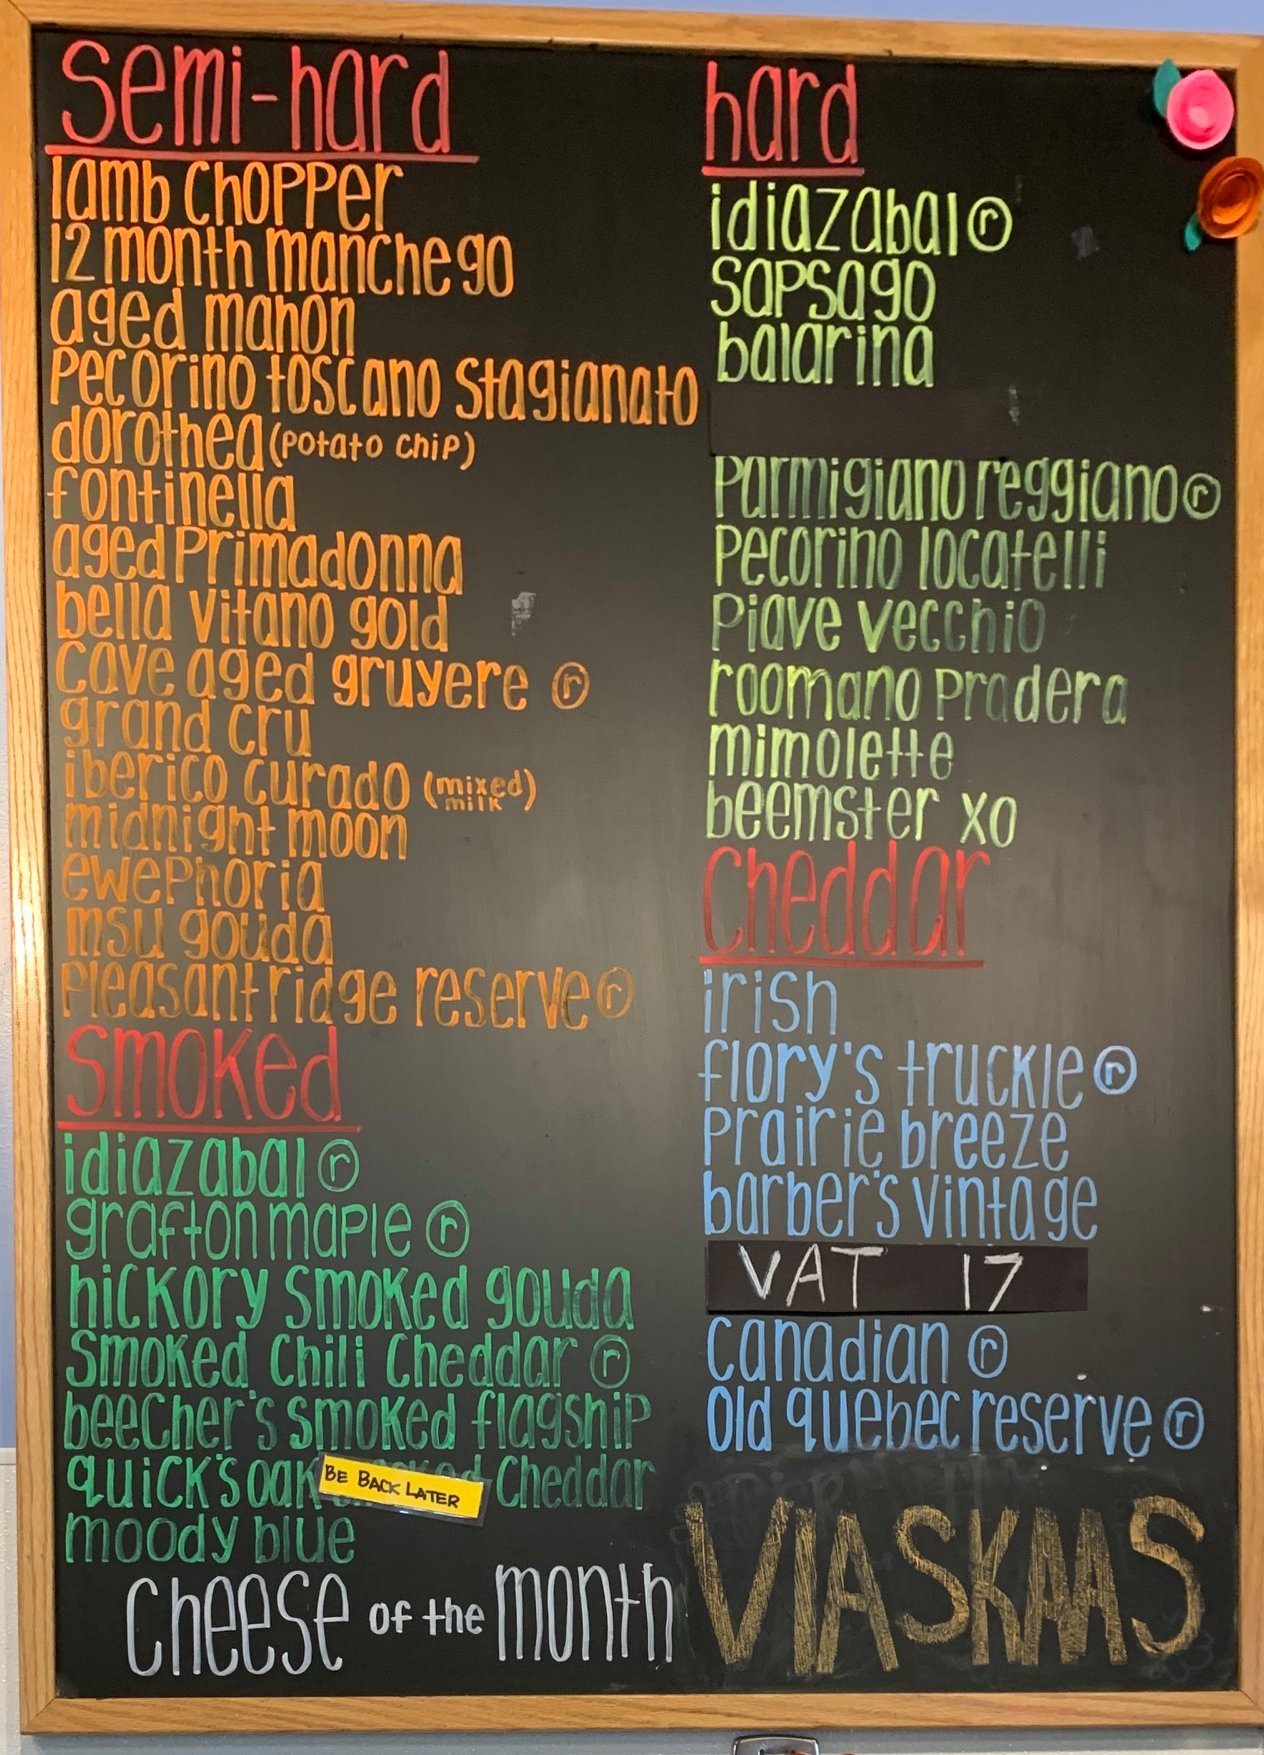 semi-hard
lamb chopper
12 month manchego
aged mahon
pecorino toscano stagianato
dorothea (potato chip)
fontinella
aged primadonna
bella vitano gold
cave aged gruyere ⓡ
grand cru
iberico curado (mixed milk)
midnight moon
ewephoria
msu gouda
pleasant ridge reserve ⓡ
smoked
idiazabal ⓡ
grafton maple ⓡ
hickory smoked gouda
smoked chili cheddar ⓡ
beecher's smoked flagship
quick's oak smoked cheddar
BE BACK LATER
moody blue
hard
idiazabal ⓡ
sapsago
balarina
parmigiano reggiano ⓡ
pecorino locatelli
piave vecchio
roomano pradera
mimolette
beemster xo
cheddar
irish
flory's truckle ⓡ
prairie breeze
barber's vintage
VAT 17
canadian ⓡ
old quebec reserve ⓡ
cheese of the month VIASKAAS